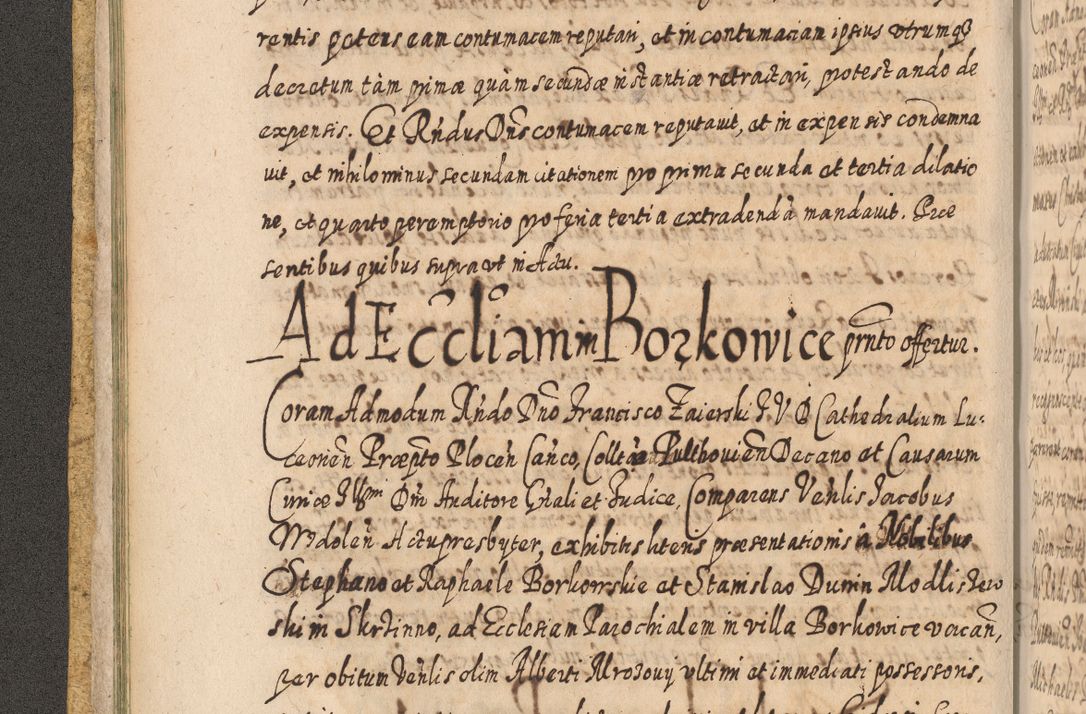 rentis petens eam contumacem reputari, et in contumaciam ipsius utrumq
decretum tàm primæ quàm secundæ instantiæ retractari, protestando de
expensis. Et Rn̄dus Dn̄s contumacem reputavit, et in expensis condemna
vit, et nihilominus secundam citationem pro prima secunda et tertia dilatio
ne, et quarto peremptorio pro feria tertia extradendà mandavit. Præ
sentibus quibus supra ut in Actu.
Ad Ecc̄liam in Borzkowice prn̄to offertur.
Coram Admodum Rn̄do Dn̄o Francisco Zaierski J. V. D Cathedralium Lu-
ceonēn Præp̄to Plocēn Cān̄co, Collt̄æ Pultoviēn Decano et Causarum
Curiæ Illm̄i Dn̄i Auditore Gn̄ali et Judice, Comparens Ven̄lis Jacobus
Actupresbyter, exhibitis literis præsentationis à Nobilibus
Stephano et Raphaele Borkowskie et Stanislao Dunin Modlistew
ski in Skrzinno, ad Ecclesiam Parochialem in villa Borkowice vacān̄,
per obitum Ven̄lis olim Alberti Mrozovij ultimi et immediati possessoris,